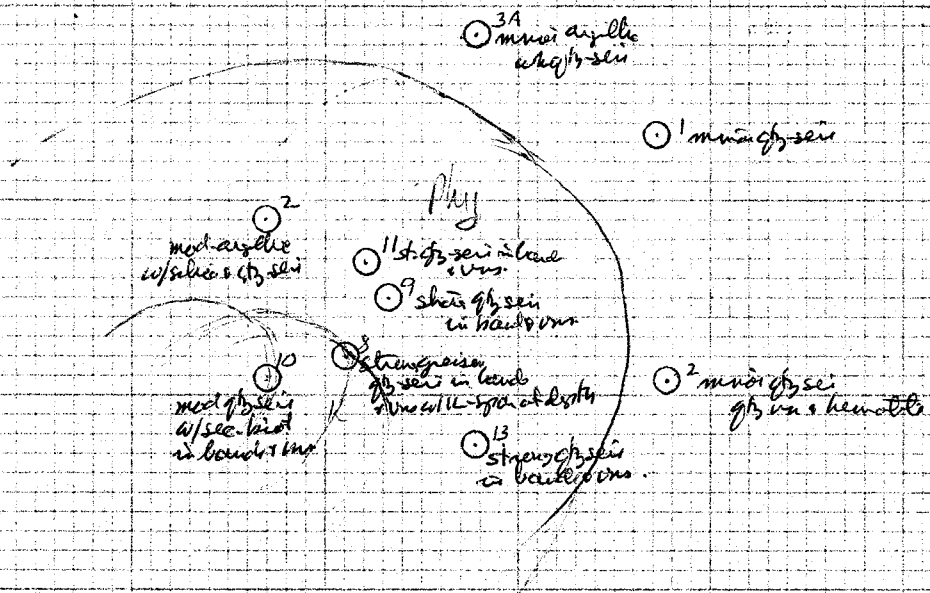 3A
minor argillic
w/ qtz-seri
1 minor qtz-seri
Phy
2
mod-argillic
w/silica & qtz-seri
11 st. qtz-seri in bands
+ vns.
9 qtz seri
in bands + vns
8
strong greisen
qtz-seri in bands
+ vns w/ K-spar at depth
10
mod qtz seri
w/sec. biot
in bands + vns
K
2 minor qtz seri
qtz vn + hematite
13
strong qtz seri
in bands + vns.